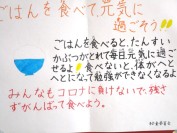 ごはんを食べて元気に
過ごそう
ごはんを食べると、たんすい
かぶつがとれて毎日元気に過ご
せるよ 食べないと、体がへと
へとになって勉強ができなくなるよ
みんなもコロナに負けないで、残さ
ずがんばって食べよう。